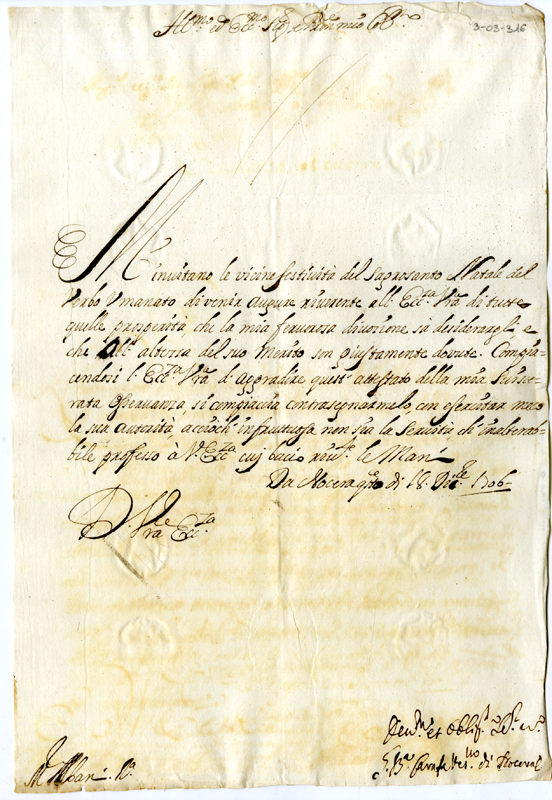 Ill.mo ed Ecc.mo Sig.re e mio
3-03-316
M'invitano le vicine festività del Sagrosanto Natale del
Verbo Umanato di venir Augure riverente all'Ecc.za Vra di tutte
quelle prosperità che la mia fervorosa divozione sà desiderargli, e
che all'altezza del suo Merito son giustamente dovute. Compia-
cendosi l'Ecc.za Vra d'aggradire quest'attestato della mia
Osservanza, si compiaccia contrasegnarmelo con esercitar meco
la sua autorità acciochè infruttuosa non sia la Servitù ch'inaltera-
bile professo à V. Ecc.za cuj bacio le Mani
Da di 18 1706
D. Vra Ecc.za
Dev.mo et Oblig.
Carafa di
M.